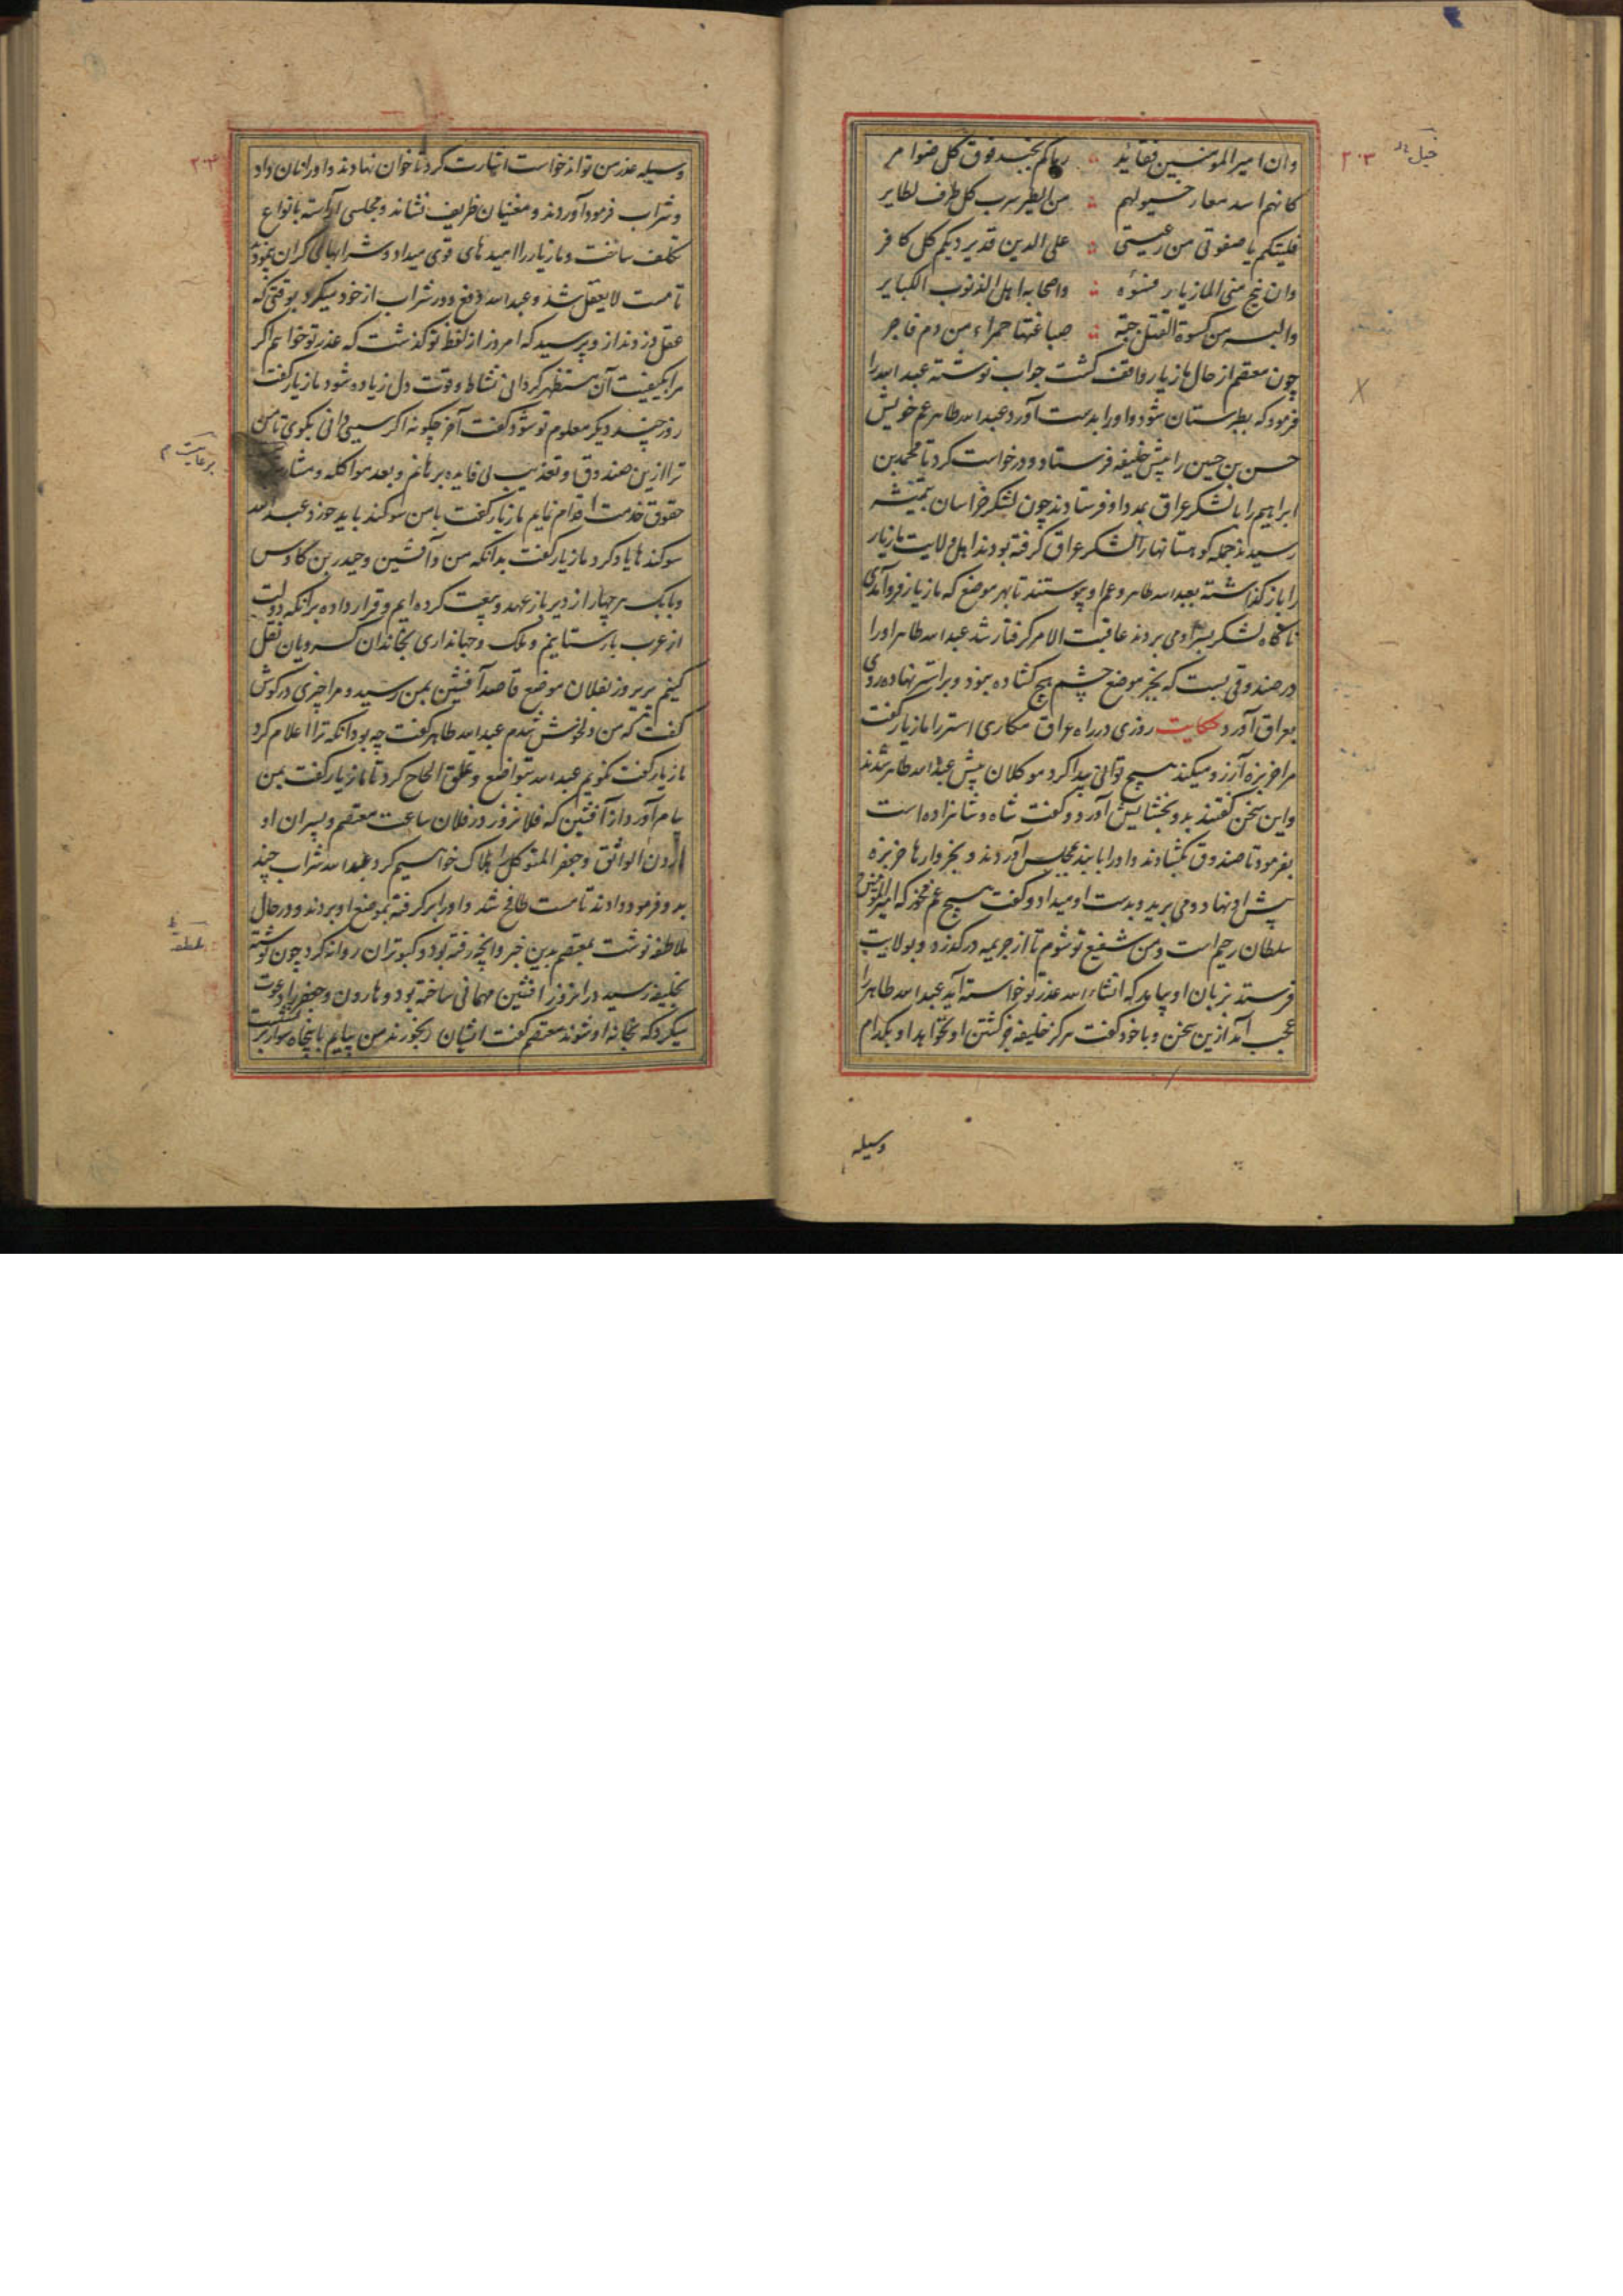 وان امیرالمومنین فقاید ؞ رماکم بجند فوق کل ضوامر
کانهم اسد معار خیولهم ؞ من الطیر سرب کل طرف لطایر
فلیتکم یا صفوتی من رعیتی ؞ علی الدین قدیردیکم کل کافر
وان نج منی المازیار فتنوه ؞ واصحابه اهل الذنوب الکبایر
والبسه من کسوة القتل جبّة ؞ صباغتها حمراء من دم فاجر
چون معتصم از حال مازیار واقف کشت جواب نوشته عبدالله را
فرمود که بطبرستان شود و اورا بدست آورد عبدالله طاهر عم خویش
حسن بن حسین را پیش خلیفه فرستاد و درخواست کرد تا محمد بن
ابراهیم را با لشکر عراق بمدد او فرستادند چون لشکر خراسان بتمیشه
رسیدند جمله کوهستانها را لشکر عراق کرفته بودند اهل ولایت مازیار
را باز کذاشته بعبدالله طاهر و عم او پیوستند تا بهر موضع که مازیار فرو آمدی
ناکاه لشکر بسر او می بردند عاقبت الامر کرفتار شد عبدالله طاهر اورا
در صندوقی بست که بجز موضع چشم هیچ کشاده نبود و بر استر نهاده روی
بعراق آورد حکایت روزی در راه عراق مکاری استر را مازیار کفت
مرا خربزه آرزو میکند هیچ توانی پیدا کرد موکلان پیش عبدالله طاهر شدند
و این سخن کفتند برو بخشایش آورد و کفت شاه و شاهزاده است
بفرمود تا صندوق بکشادند و اورا با بند بمجلس آوردند و بخروارها خربزه
پیش او نهاد و می برید و بدست او میداد و کفت هیچ غم مخور که امیرالمومنین
سلطان رحیم است و من شفیع تو شوم تا از جریمه در کذرد و بولایت
فرستد بزبان او بیاید که انشاء الله عذر تو خواسته آید عبدالله طاهر را
عجب آمد ازین سخن و با خود کفت هرکز خلیفه جز کشتن او نخواهد او بکدام
وسیله
خیل
۲۰۳
وسیله عذر من تواند خواست اشارت کرد تا خوان نهادند و اورا نان داد
و شراب فرمود آوردند و مغنیان ظریف نشاند و مجلسی آراسته بانواع
تکلف ساخت و مازیار را امیدهای قوی میداد و شرابهای کران می‌نمود
تا مست لایعقل شد و عبدالله دفع دور شراب از خود میکرد بوقتی که
عقل دزدند ازو پرسید که امروز از لفظ تو کذشت که عذر تو خواهم اکر
مرا بکیفیت آن مستظهر کردانی نشاط و قوت دل زیاده شود مازیار کفت
روز چند دیکر معلوم تو شود کفت آخر چکونه اکر سببی دانی بکوی تا من
ترا ازین صندوق و تعذیب بی فایده برهانم و بعد مواکله و مشار
حقوق خدمت اقوام نمایم مازیار کفت با من سوکند باید خورد عبدالله
سوکندها یاد کرد مازیار کفت بدانکه من و آفشین و حیدر بن کاوس
و بابک هر چهار از دیر باز عهد و بیعت کرده ایم و قرار داده برانکه دولت
از عرب باز ستانیم و ملک و جهانداری بخاندان کسرویان نقل
کنیم پریروز بفلان موضع قاصد آفشین بمن رسید و مرا چیزی در کوش
کفت که من دلخوش شدم عبدالله طاهر کفت چه بود آنکه ترا اعلام کرد
مازیار کفت نکویم عبدالله بتواضع و تملق الحاح کرد تا مازیار کفت بمن
پیام آورد از آفشین که فلانروز در فلان ساعت معتصم و پسران او
هارون الواثق و جعفر المتوکل را هلاک خواهیم کرد عبدالله شراب چند
بدو فرمود دادند تا مست طافح شد و اورا بر کرفته بموضع او بردند و در حال
ملاطفه نوشت بمعتصم بدین خبر و آنچه رفته بود و کبوتران روانه کرد چون نوشته
بخلیفه رسید در آنروز افشین مهمانی ساخته بود و هارون و جعفر را دعوت
میکرد که بخانه او شوند معتصم کفت ایشان رنجورند من بیایم با پنجاه سوار بر نشست
۲۰۳
برعایت م